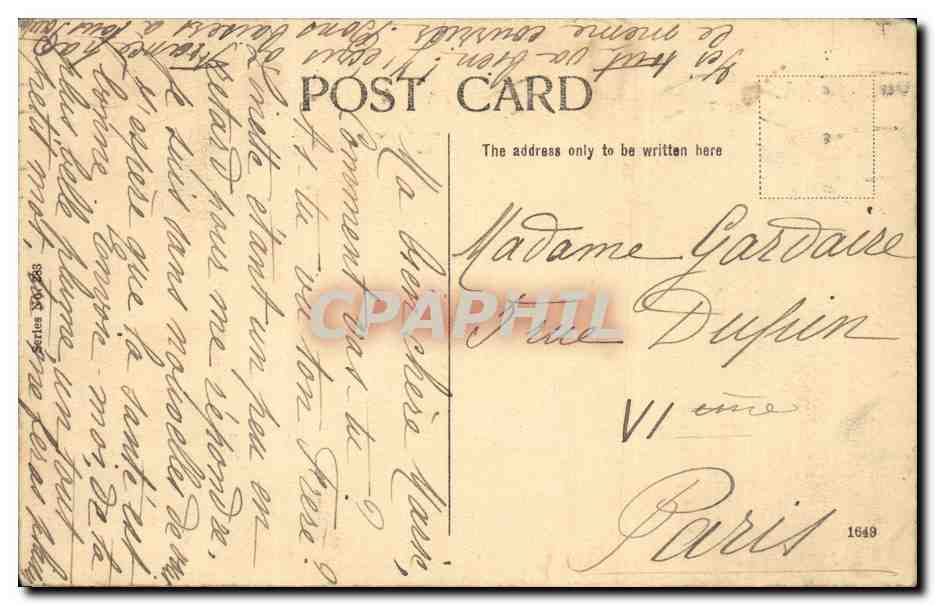 POST CARD
The address only to be written here
Madame Gardaire
7 rue Dupin
VIème
Paris
1649
Series No. 288
CPAPHIL
Ma bien chère Marie,
Comment vas-tu ?
As-tu vu ton Frère ?
Ginette étant un peu en
retard pour me répondre,
je suis sans nouvelles de vous
J'espère que la santé est
bonne. Envoie-moi, de ta
plus belle plume, un tout
petit mot,
Ici tout va bien !
le même courrier. Bons baisers à tous